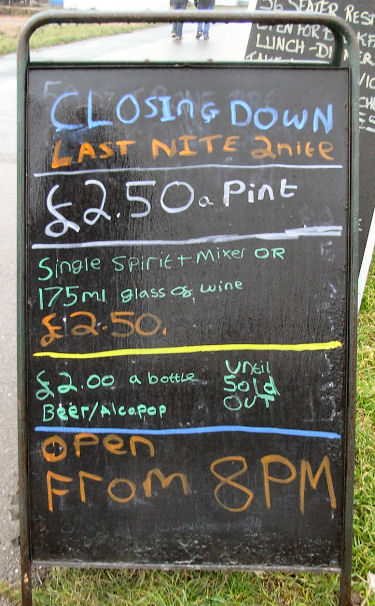 36 SEATER REST
OPEN FOR
LUNCH - DI
CLOSING DOWN
LAST NITE 2nite
£2.50 a Pint
Single Spirit + Mixer OR
175ml glass of wine
£2.50.
£2.00 a bottle
Beer/Alcopop
Until
Sold
OUT
OPEN
From 8PM